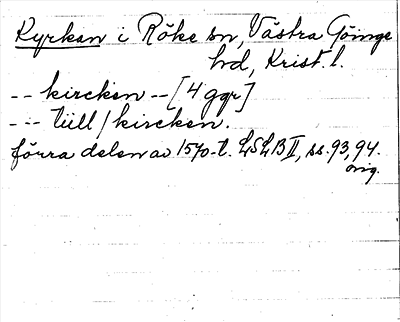 Kyrkan i Röke sn, Västra Göinge
hd, Krist. l.
-- kircken -- [4 ggr]
-- tüll / kircken.
förra delen av 1570-t. LSLB II, ss. 93, 94.
orig.